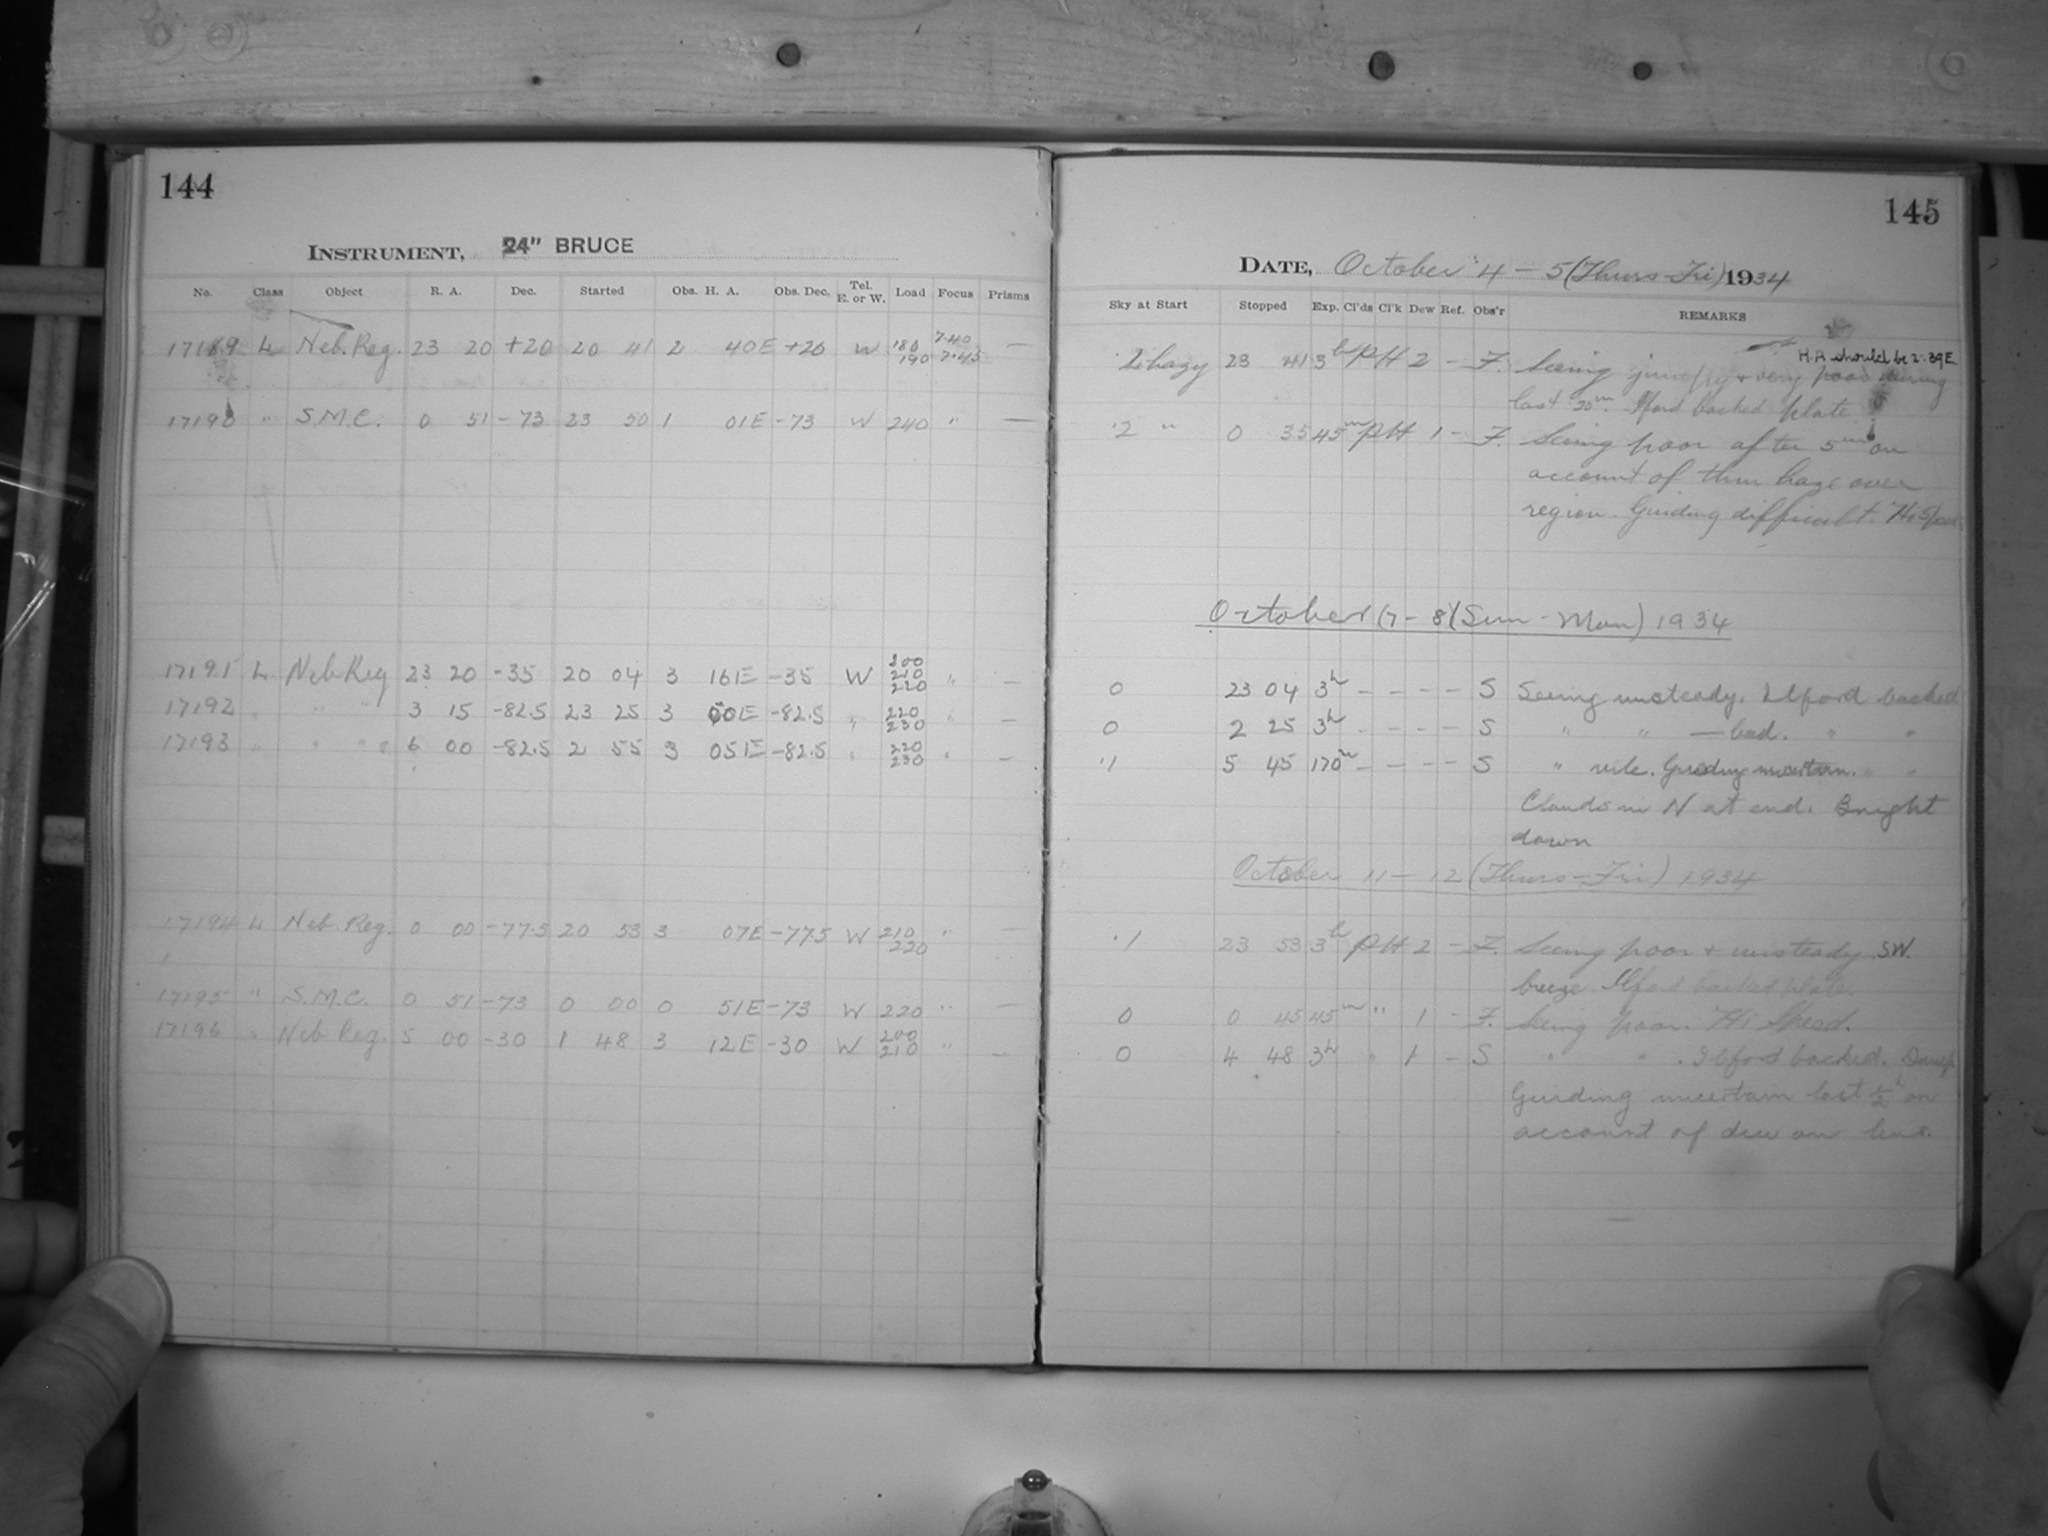 144
INSTRUMENT, 24" BRUCE
No. Class Object R. A. Dec. Started Obs. H. A. Obs. Dec. Tel. E. or W. Load Focus Prisms
17189 L Neb. Reg. 23 20 +20 20 41 2 40E +20 W 180 190 7.40 7.45 —
17190 " S.M.C. 0 51 -73 23 50 1 01E -73 W 240 " —
17191 L Neb Reg 23 20 -35 20 04 3 16E -35 W 200 210 220 " —
17192 " " " 3 15 -82.5 23 25 3 00E -82.5 " 220 230 " —
17193 " " " 6 00 -82.5 2 55 3 05E -82.5 " 220 230 " —
17194 L Neb. Reg. 0 00 -77.5 20 53 3 07E -77.5 W 210 220 " —
17195 " S.M.C. 0 51 -73 0 00 0 51E -73 W 220 " —
17196 " Neb Reg. 5 00 -30 1 48 3 12E -30 W 200 210 " —
145
DATE, October 4 - 5 (Thurs-Fri) 1934
Sky at Start Stopped Exp. Cl'ds Cl'k Dew Ref. Obs'r REMARKS
H.A should be 2:39E
hazy 23 41 3h PH 2 - F. Seeing jumpy + very poor during
last 20m. Ilford backed plate
.2 " 0 35 45m PH 1 - F. Seeing poor after 5m on
account of thin haze over
region. Guiding difficult. Hi Speed
October (7 - 8) (Sun - Mon) 1934
0 23 04 3h - - - - S Seeing unsteady. Ilford backed
0 2 25 3h - - - - S " " — bad. " "
.1 5 45 170m - - - - S " vile. Guiding uncertain. " "
Clouds in N at end. Bright
dawn
October 11 - 12 (Thurs-Fri) 1934
.1 23 53 3h PH 2 - F. Seeing poor + unsteady SW.
breeze Ilford backed plate.
0 0 45 45m " 1 - F. Seeing poor. Hi Speed.
0 4 48 3h " 1 - S " " . Ilford backed. Damp
Guiding uncertain last ½h on
account of dew on lens.